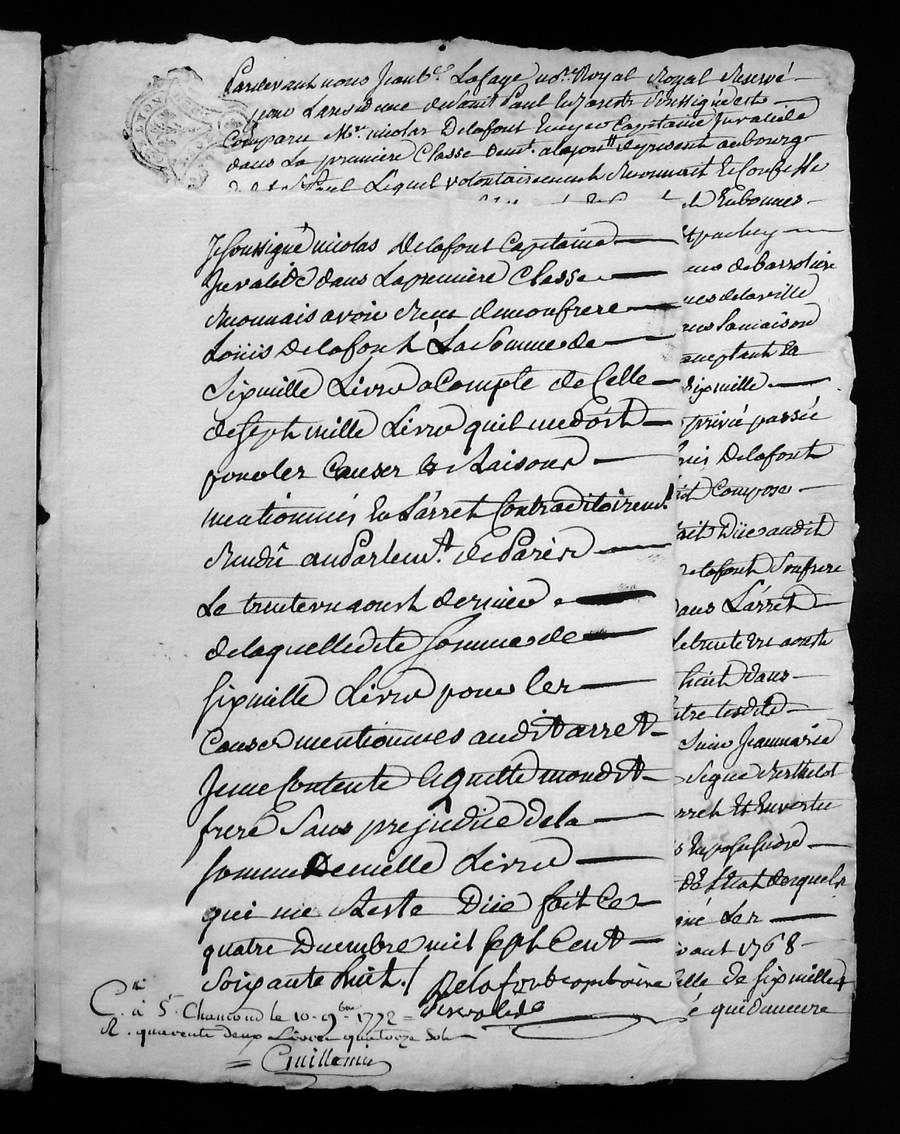 Pardevant nous Lafaye no.re Royal Royal Reservé
pour La residence de Saint Paul En Jarest Soussigné est
Comparu Mr. nicolas Delafont Ecuyer Capitaine Invalide
dans La premiere Classe a Lyon present au bourg
de St. Paul Lequel volontairement Reconnoit Et Confesse
Je Soussigné nicolas Delafont Capitaine
Invalide dans La premiere Classe
Reconnais avoir Recu de mon frere
Loüis Delafont La Somme de
Six mille Livres a Compte de Celle
de Sept mille Livres quil me doit
pour les Causes & Raisons
mentionnés En L'arret Contraditoirem.t
Rendû au Parlem.t de Paris
Le trente un aoust dernier
de laquelle dite Somme de
Six mille Livres pour les
Causes mentionnes audit arret
Je me Contente & quitte mondit
frere Sans prejudice de la
Somme De mille Livres
qui me Reste Düe fait Ce
quatre Decembre mil Sept Cent
Soixante huit./. Delafont capitaine
Invalide
en bonnes
de barrotiere
de la ville
Sa maison
acceptant La
Six mille
privé passée
Delafont
Compose
Düe audit
Delafont Son frere
dans L'arret
Le trente un aoust
huit dans
Jeanmarie
Signé Berthelot
arret Et En vertu
1768
Celle de Six mille
qui demeure
C.lé à St. Chamond le 10. 9bre 1772 =
R. quarente deux Livres quatorze Sols
= Guillemin